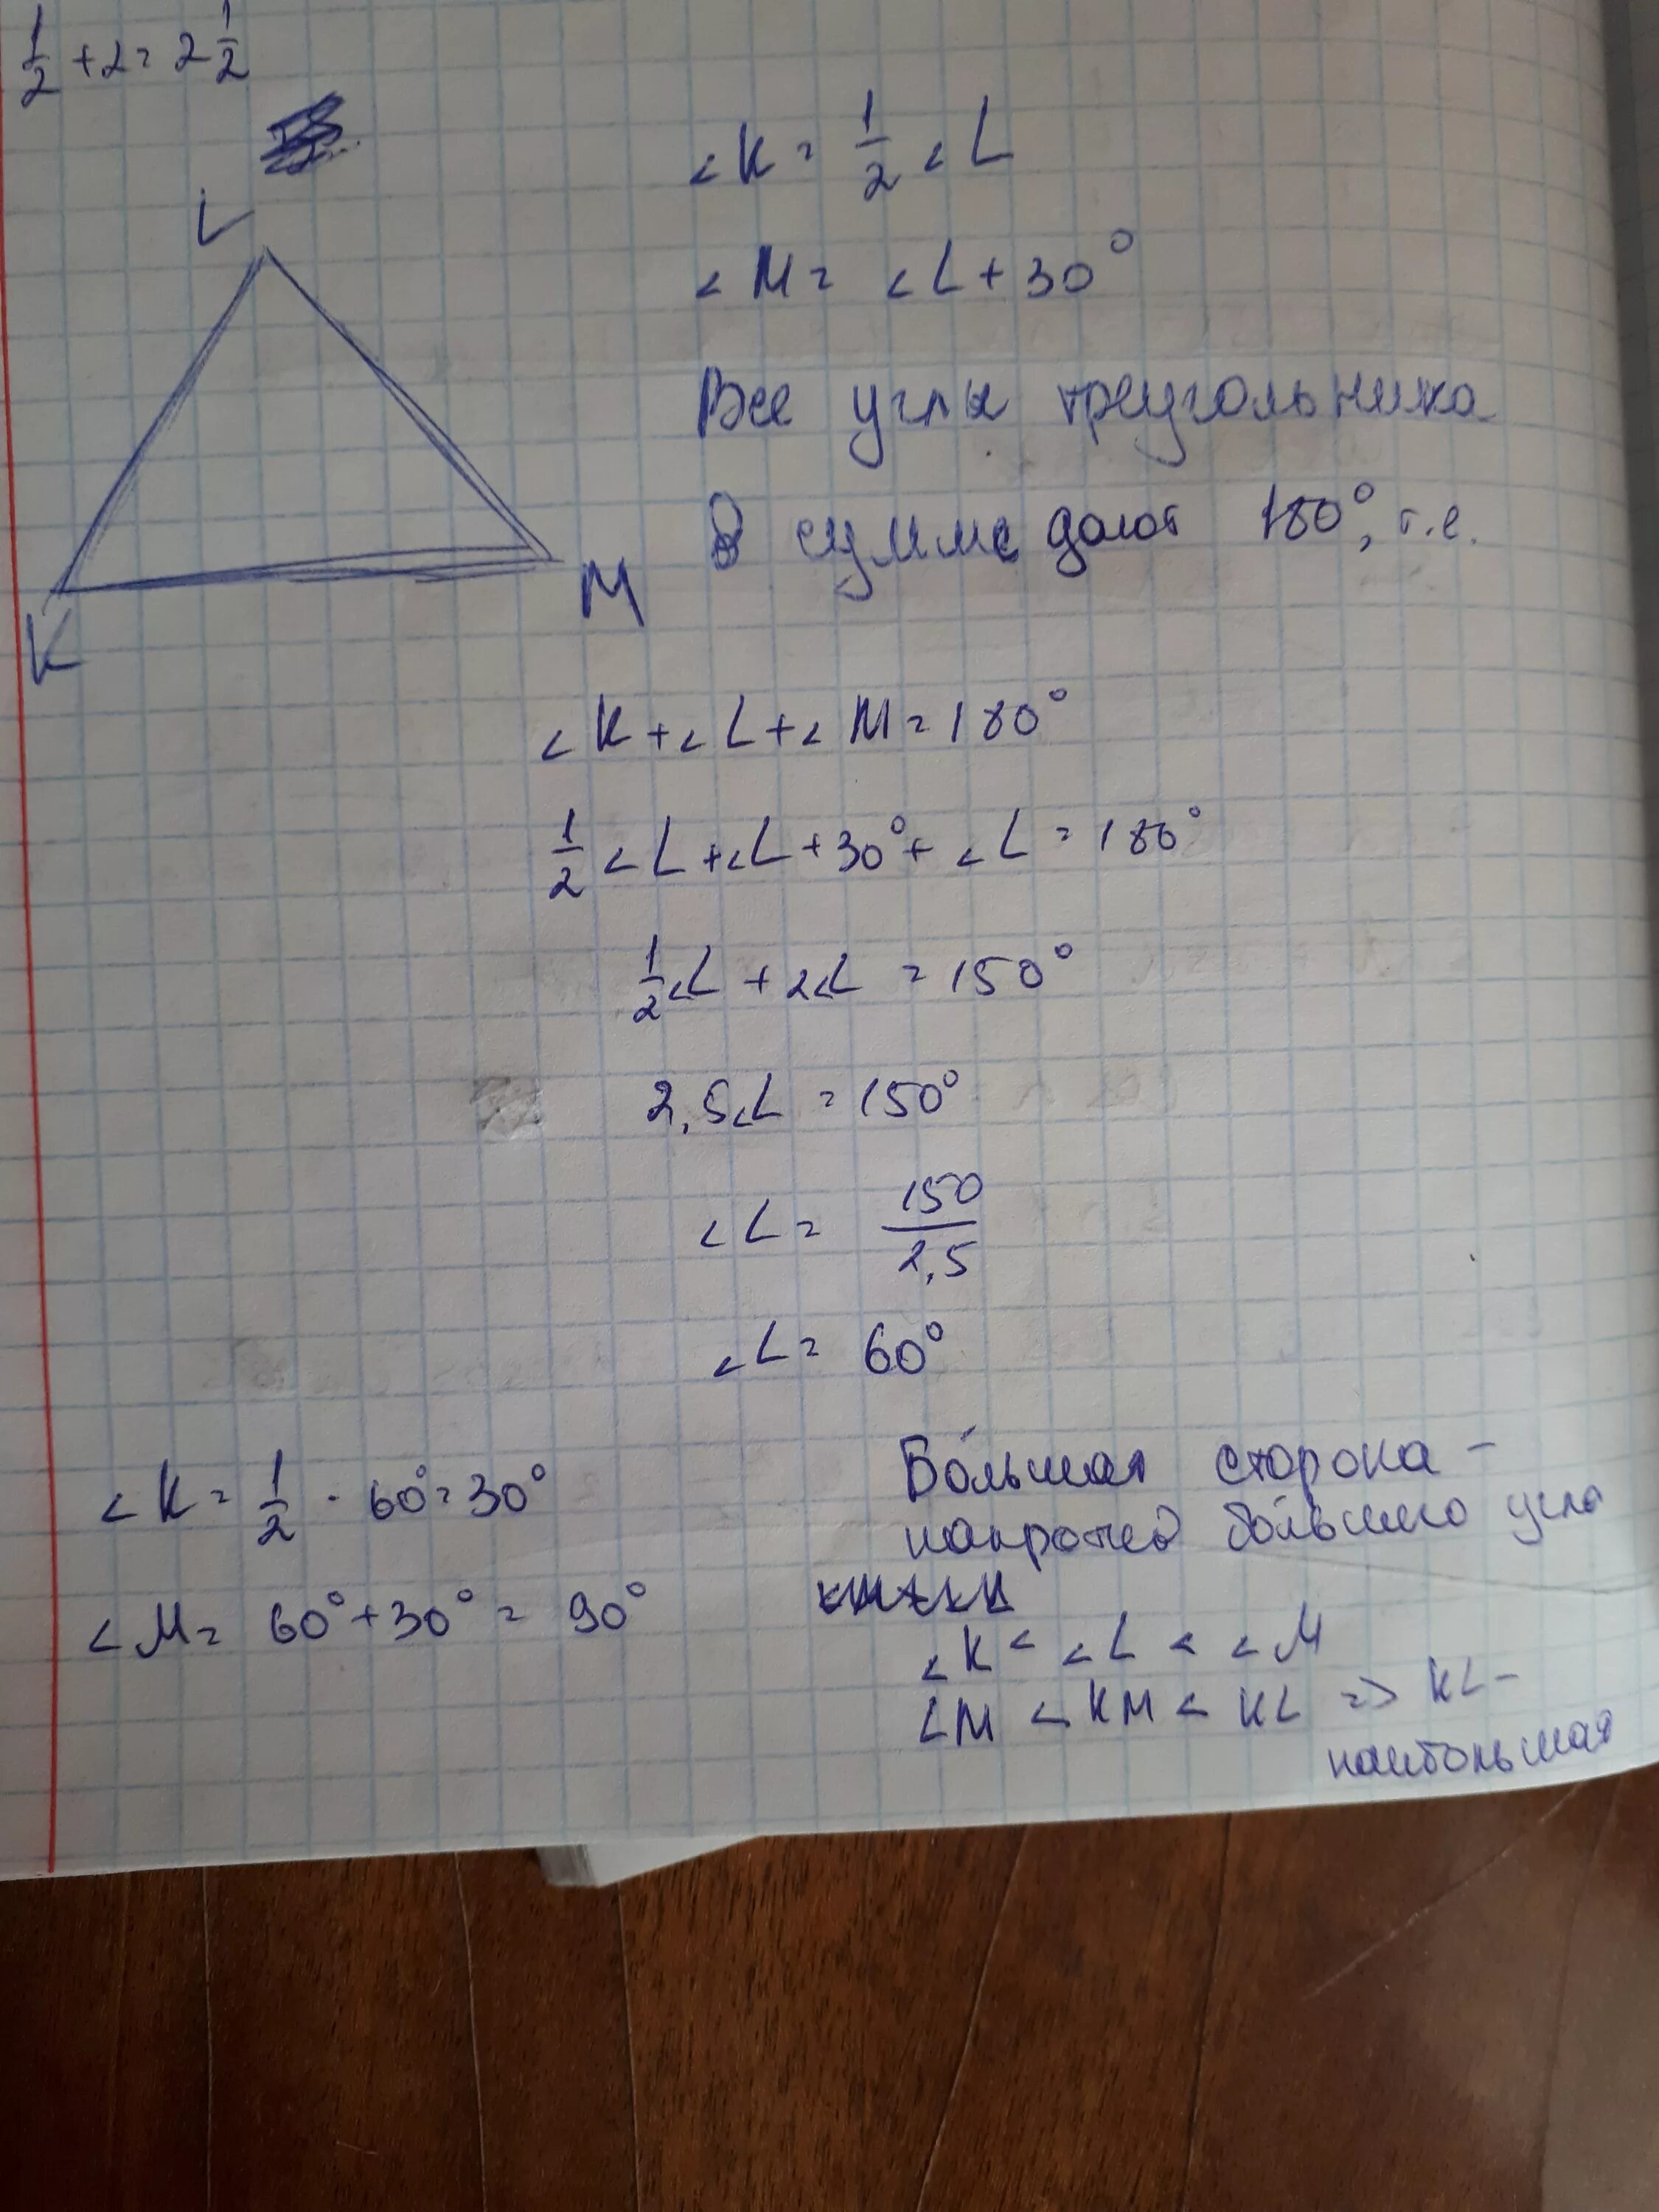 1/2 + 2 = 2 1/2
L
K
M
∠K = 1/2 ∠L
∠M = ∠L + 30°
Все углы треугольника
в сумме дают 180°, т.е.
∠K + ∠L + ∠M = 180°
1/2 ∠L + ∠L + 30° + ∠L = 180°
1/2 ∠L + 2∠L = 150°
2,5∠L = 150°
∠L = 150/2,5
∠L = 60°
∠K = 1/2 · 60° = 30°
∠M = 60° + 30° = 90°
Бо́льшая сторона –
напротив бо́льшего угла
∠K < ∠L < ∠M
LM < KM < KL => KL –
наибольшая